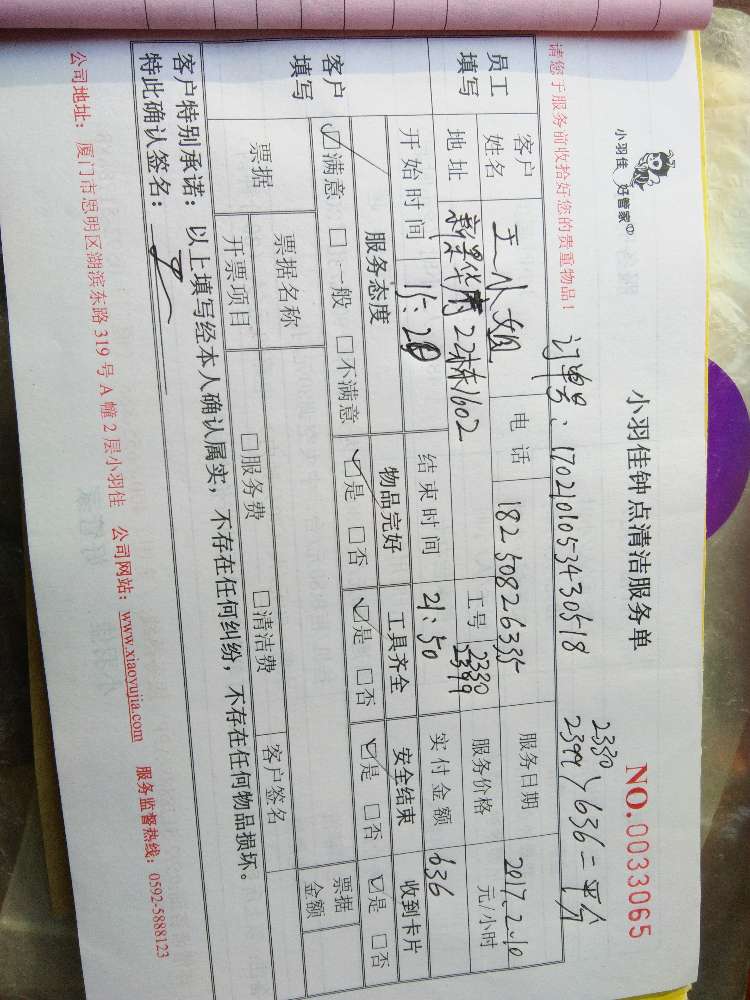 小羽佳 好管家
小羽佳钟点清洁服务单
NO.0033065
请您于服务前收拾好您的贵重物品！
订单号：1702101053430518
2330
2399 } 636 = 平分
员工填写
客户姓名 王小姐 电话 18250826335 服务日期 2017.2.10
地址 新景华府22栋1602 工号 2330 2399 服务价格 元/小时
开始时间 15:20 结束时间 21:50 实付金额 636
客户填写
服务态度 物品完好 工具齐全 安全结束 收到卡片
☑满意 □一般 □不满意 ☑是 □否 ☑是 □否 ☑是 □否 ☑是 □否
票据 票据名称 票据金额
开票项目 □服务费 □清洁费 客户签名
客户特别承诺：以上填写经本人确认属实，不存在任何纠纷，不存在任何物品损坏。
特此确认签名：
公司地址：厦门市思明区湖滨东路319号A幢2层小羽佳 公司网站：www.xiaoyujia.com 服务监督热线：0592-5888123